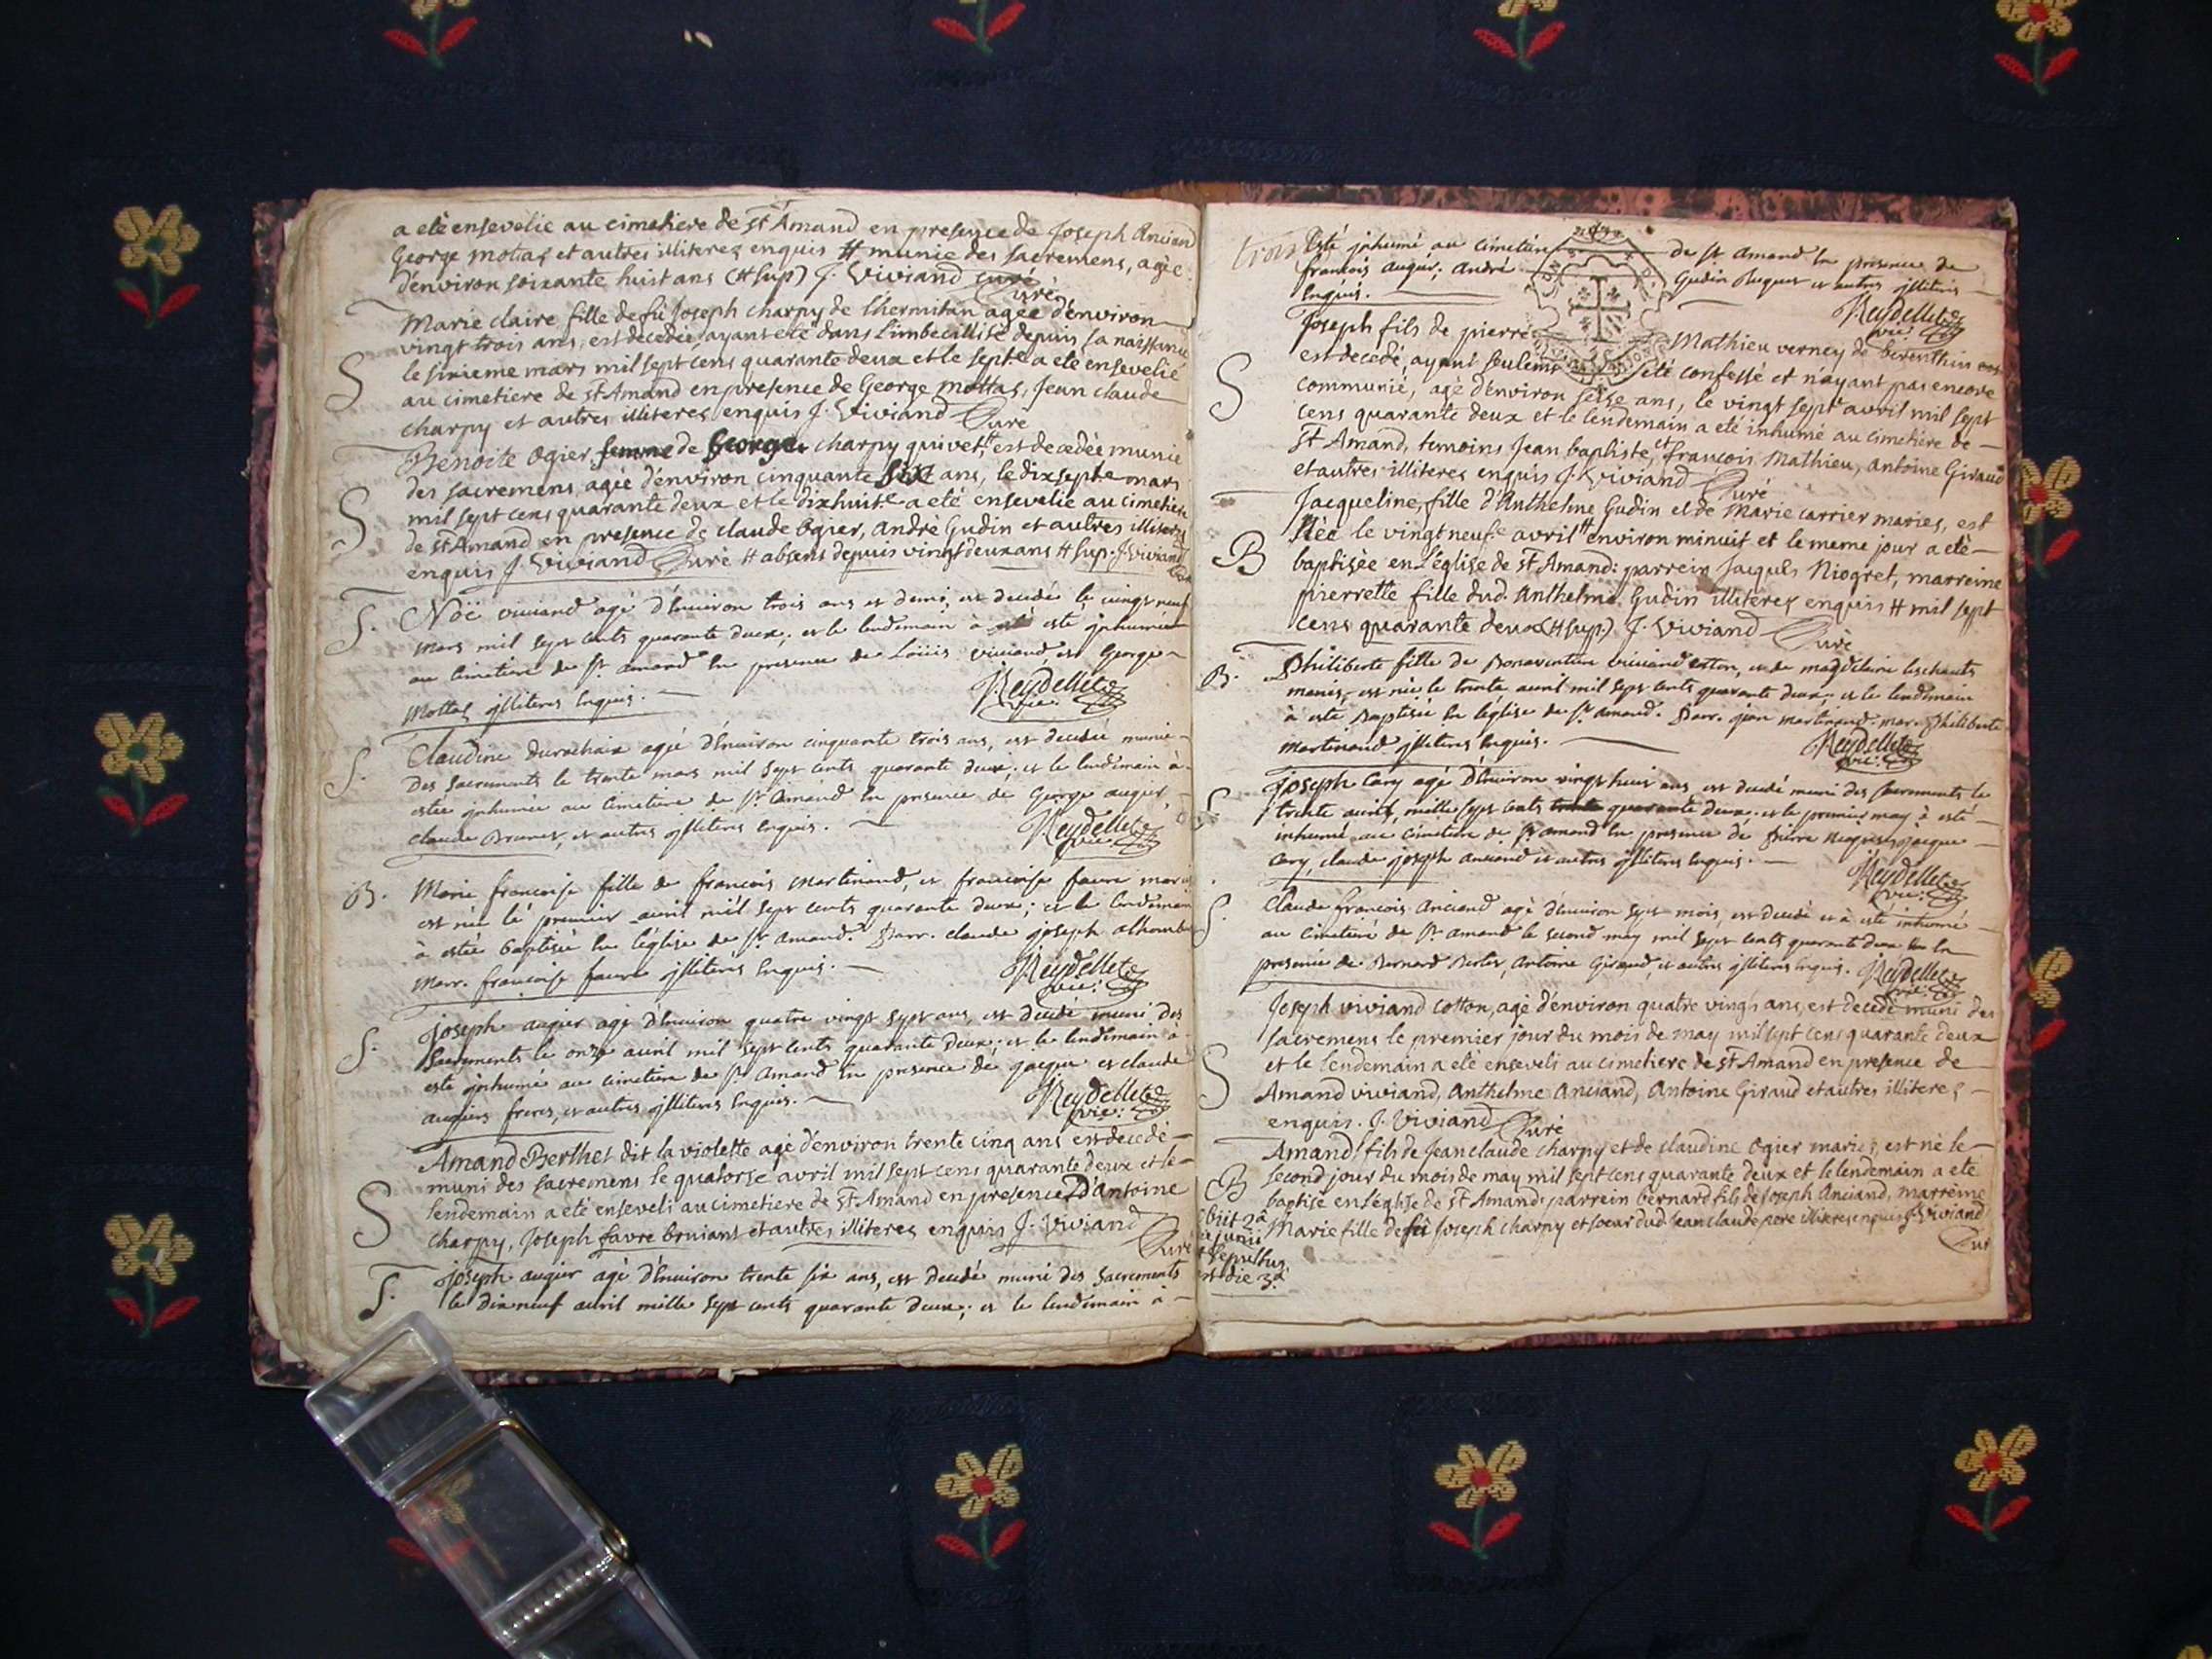 a eté ensevelie au cimetiere de St Amand en presence de Joseph Anciand
George mottas et autres illiteres enquis # munie des sacremens, agée
d'environ soixante huit ans (# sup) J. Viviand curé
Curé
Marie claire fille de fû Joseph charpy de l'hermitan agée d'environ
vingt trois ans, est decedée, ayant eté dans l'imbecillité depuis sa naissance
le sixieme mars mil sept cens quarante deux et le septe a eté ensevelie
au cimetiere de St Amand en presence de George mottas, Jean claude
S
charpy et autres illiteres enquis J. Viviand Curé
Benoite Ogier femme de George charpy qui vet #, est decedée munie
des sacremens, agée d'environ cinquante six ans, le dix septe mars
mil sept cens quarante deux et le dixhuite a eté ensevelie au cimetiere
S
de St Amand en presence de claude Ogier, André Gudin et autres illiteres
enquis J. Viviand Curé # absens depuis vingt deux ans # sup. J. Viviand
Curé
S. Noë viviand agé d'environ trois ans et demi, est decedé le vingt neuf
mars mil sept cents quarante deux; et le lendemain à esté inhumé
au cimetiere de St amand en presence de Loüis viviand et George
Mottas illiteres enquis. Reydellet
vic:
S. Claudine durochaix agée d'environ cinquante trois ans, est decedée munie
des sacrements le trente mars mil sept cents quarante deux; et le lendemain à
estée inhumée au cimetiere de St Amand en presence de George augier,
claude Brunet, et autres illiteres enquis. Reydellet
vic:
B. Marie francoise fille de francois Martinand, et francoise favre mariés
est née le premier avril mil sept cents quarante deux; et le lendemain
à estée baptisée en l'église de St amand. Parr. claude joseph alhombert
marr. francoise favre illiteres enquis. Reydellet
vic:
S. joseph augier agé d'environ quatre vingt sept ans, est decedé muni des
sacrements le onze avril mil sept cents quarante deux; et le lendemain à
esté inhumé au cimetiere de St Amand en presence de jacque et claude
augiers freres, et autres illiteres enquis. Reydellet
vic:
Amand Berthet dit la violette agé d'environ trente cinq ans est decedé
muni des sacremens le quatorse avril mil sept cens quarante deux et le
S
lendemain a eté enseveli au cimetiere de St Amand en presence d'Antoine
charpy, Joseph favre bruians et autres illiteres enquis J. Viviand
Curé
S. joseph augier agé d'environ trente six ans, est decedé muni des sacrements
le dix neuf avril mille sept cents quarante deux; et le lendemain à
trois
esté inhumé au cimetiére de St amand en presence de
francois augier; andré Gudin Buguet et autres illiteres
enquis. Reydellet
vic:
Joseph fils de pierre Mathieu verney de birenthin
est decedé, ayant seulement eté confessé et n'ayant pas encore
S
communié, agé d'environ seise ans, le vingt septe avril mil sept
cens quarante deux et le lendemain a eté inhumé au cimetiere de
St Amand, temoins Jean baptiste et françois Mathieu, Antoine Giraud
et autres illiteres enquis J. Viviand Curé
Jacqueline, fille d'Anthelme Gudin et de Marie carrier mariés, est
Née le vingt neufe avril # environ minuit et le meme jour a eté
B baptisée en l'église de St Amand: parrein Jacques Niogret, marreine
pierrette fille dud. Anthelme Gudin illiteres enquis # mil sept
cens quarante deux (# sup.) J. Viviand Curé
B. Philiberte fille de Bonaventure viviand cotton, et de magdelaine leschauts
mariés, est née le trente avril mil sept cents quarante deux; et le lendemain
à esté Baptisée en l'église de St amand. Parr. jean martinand. mar. Philiberte
Martinand illiteres enquis. Reydellet
vic:
S. joseph Cary agé d'environ vingt huit ans, est decedé muni des sacrements le
trente avril, mille sept cents quarante deux. et le premier may à esté
inhumé au cimetiere de St amand en presence de Pierre jacque
Cary, claude joseph anciand et autres illiteres enquis. Reydellet
vic:
S. Claude francois Anciand agé d'environ sept mois, est decedé et à esté inhumé
au cimetiere de St amand le second may mil sept cents quarante deux en
presence de Bernard Berlet, Antoine Giraud, et autres illiteres enquis. Reydellet
vic:
Joseph viviand cotton, agé d'environ quatre vingts ans, est decedé muni des
sacremens le premier jour du mois de may mil sept cens quarante deux
et le lendemain a eté enseveli au cimetiere de St Amand en presence de
S Amand viviand, Anthelme Anciand, Antoine Giraud et autres illiteres
enquis. J. Viviand Curé
Amand fils de Jean claude charpy et de claudine Ogier mariés, est né le
second jour du mois de may mil sept cens quarante deux et le lendemain a eté
B baptisé en l'église de St Amand: parrein bernard fils de Joseph Anciand, marreine
Marie fille de fû Joseph charpy et soeur dud Jean claude pere illiteres enquis J. Viviand
Curé
obiit 2a
junii
sepultus
est die 3a